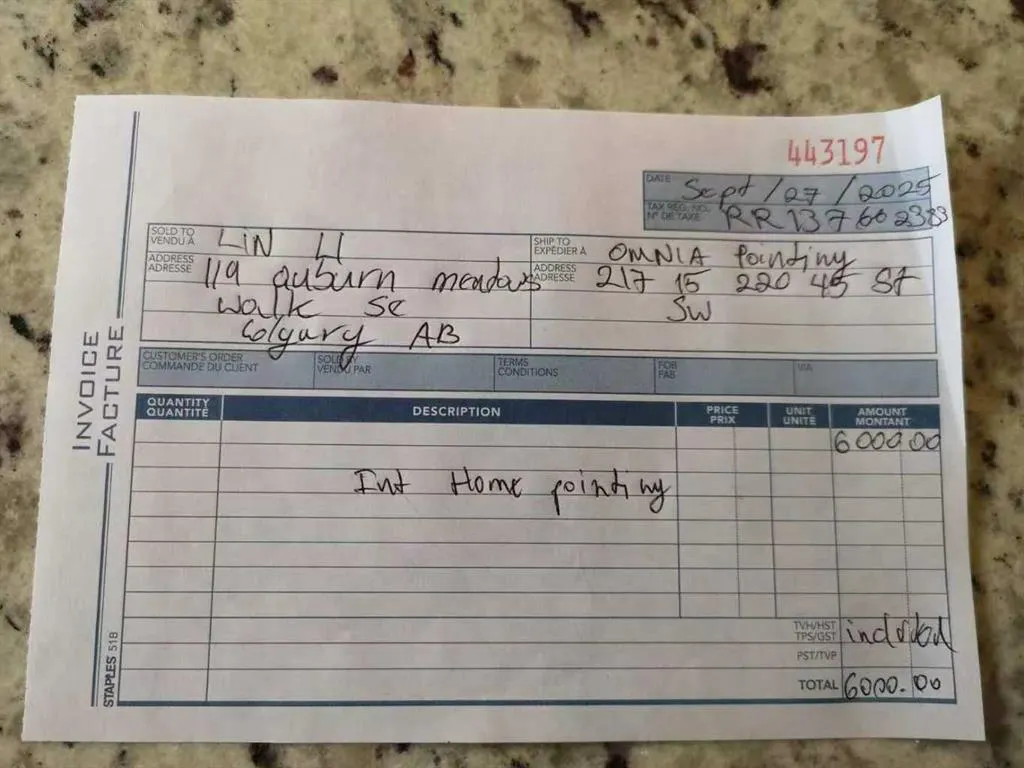 443197
DATE Sept/27/2025
TAX REG. NO. RR 137602383
N° DE TAXE
SOLD TO LIN LI
VENDU À
ADDRESS 119 auburn meadows
ADRESSE
walk se
Calgary AB
SHIP TO OMNIA Painting
EXPÉDIER À
ADDRESS 217 15 220 45 St
ADRESSE
SW
INVOICE
FACTURE
CUSTOMER'S ORDER SOLD BY TERMS FOB VIA
COMMANDE DU CLIENT VENDU PAR CONDITIONS FAB
QUANTITY DESCRIPTION PRICE UNIT AMOUNT
QUANTITÉ PRIX UNITÉ MONTANT
6000.00
Int Home painting
TVH/HST included
TPS/GST
PST/TVP
TOTAL 6000.00
STAPLES 51B